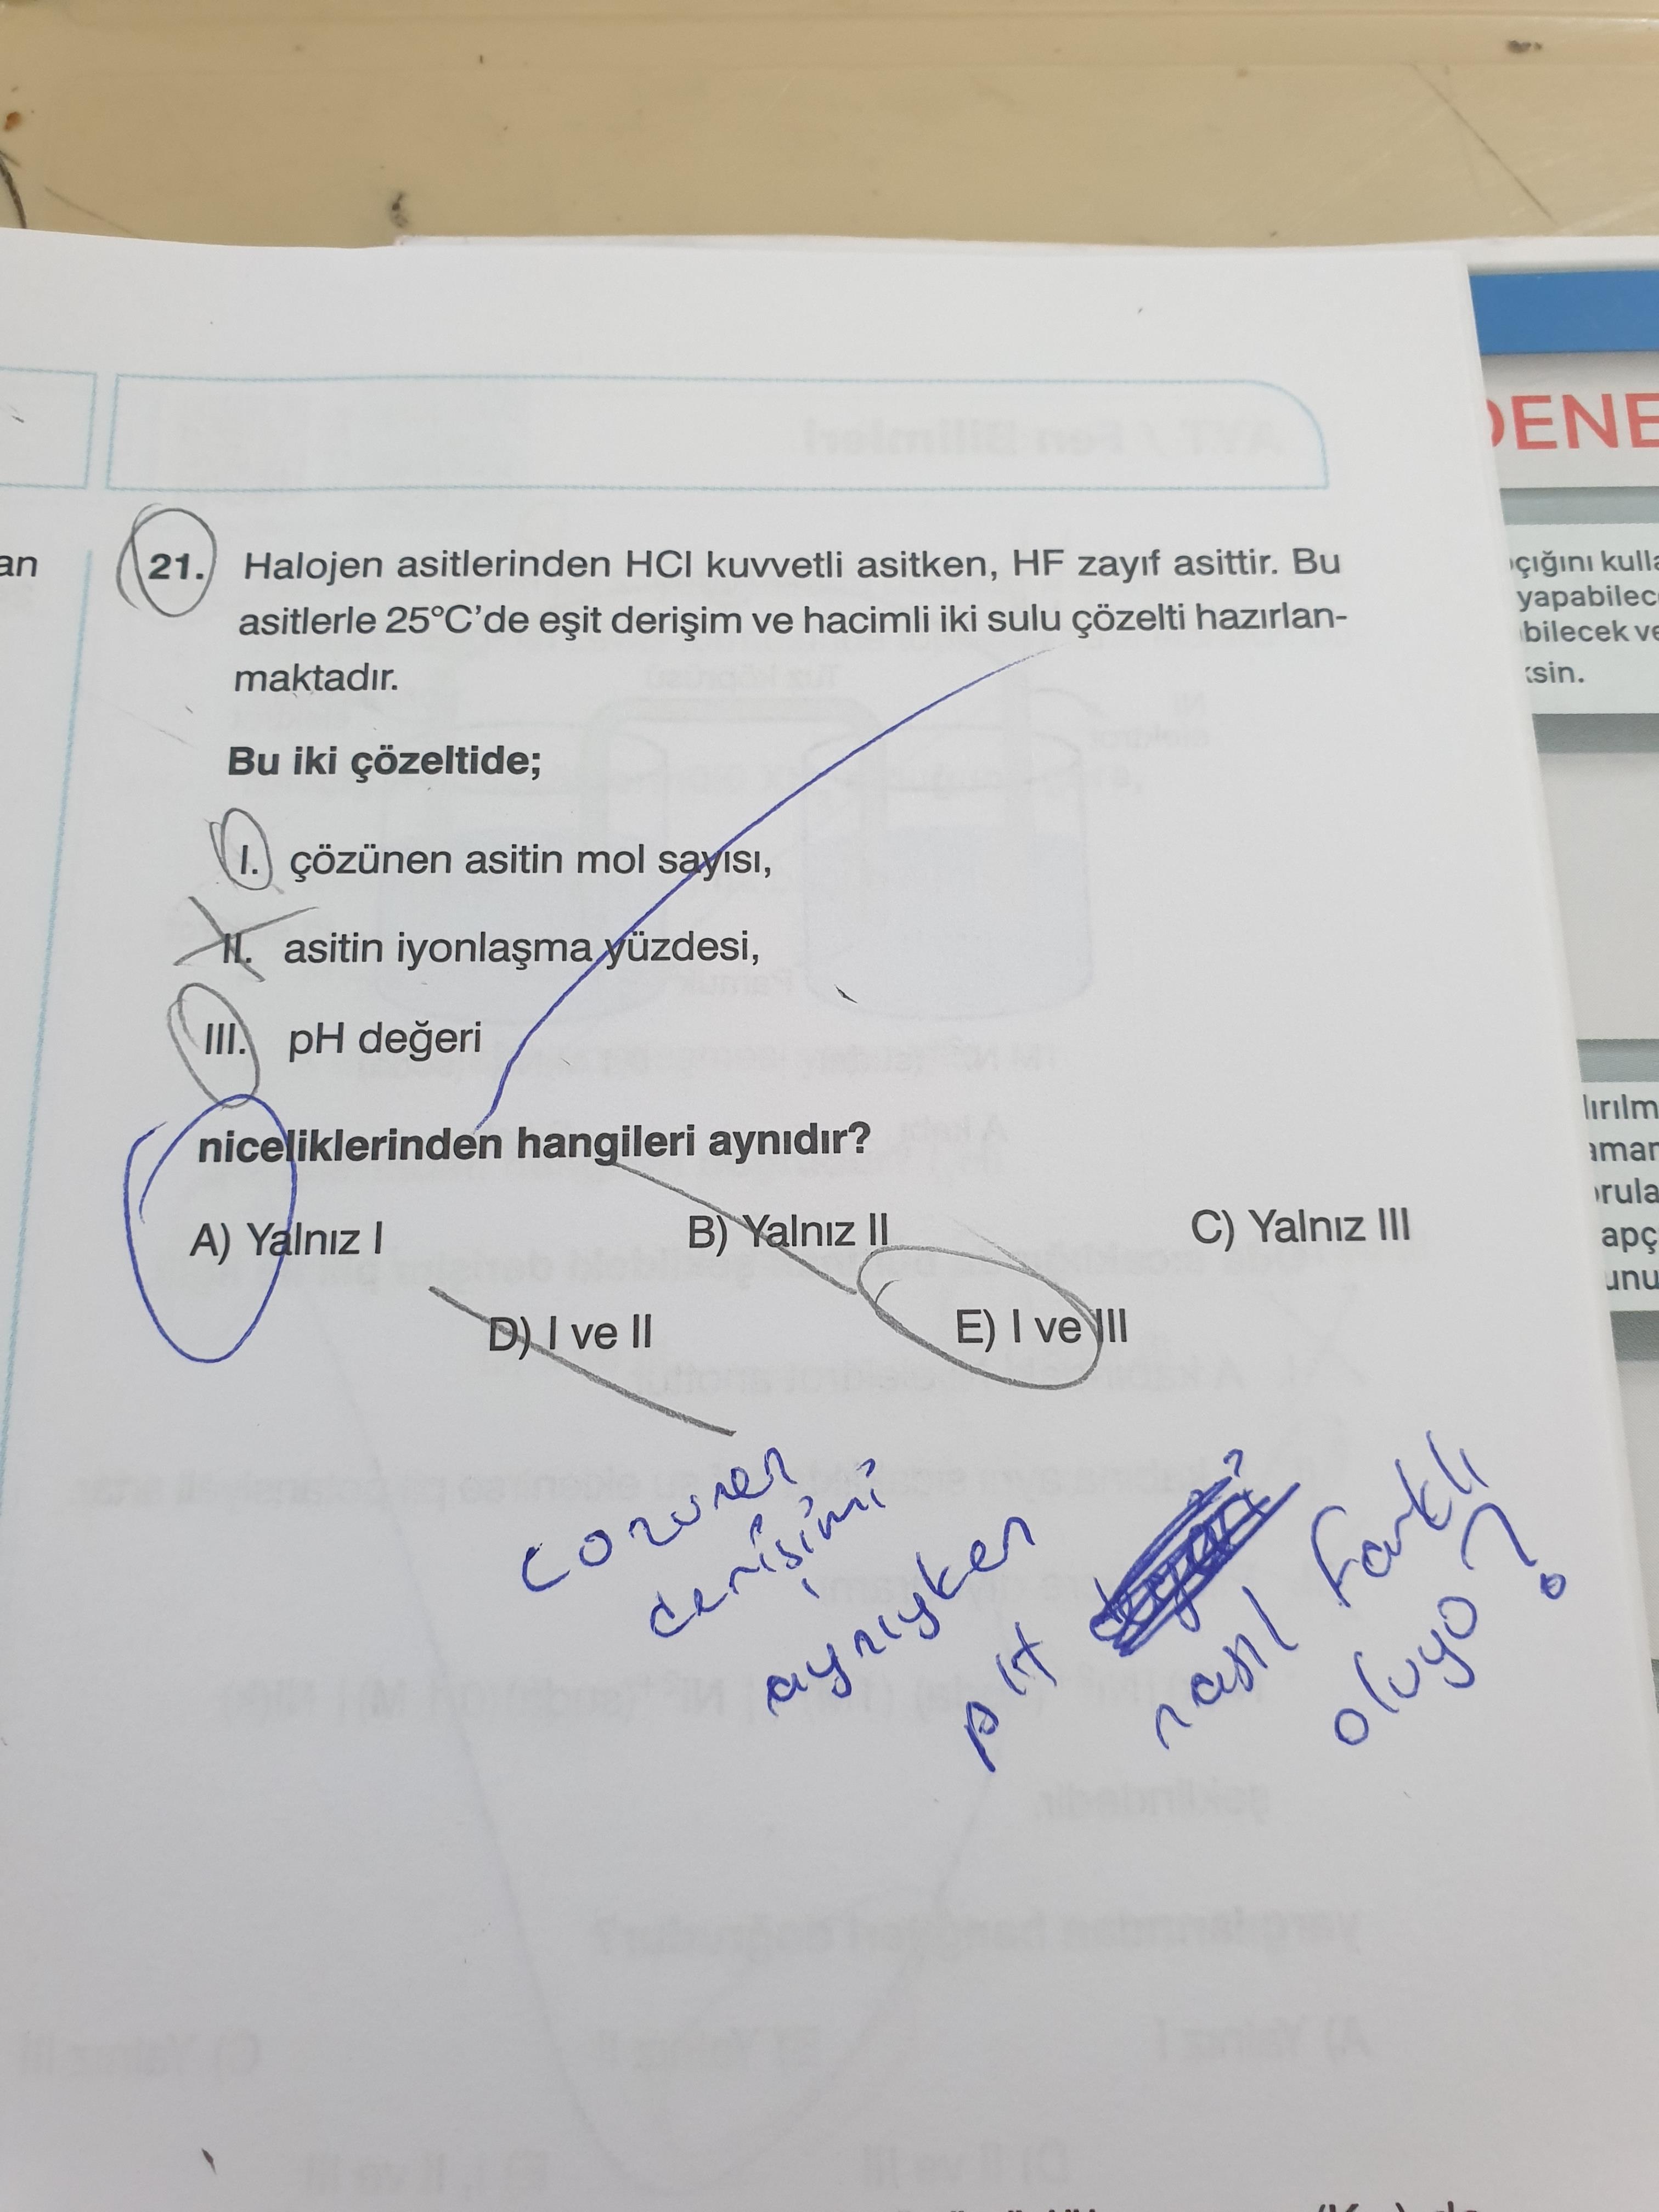 DENE
an
21. Halojen asitlerinden HCl kuvvetli asitken, HF zayıf asittir. Bu
asitlerle 25°C'de eşit derişim ve hacimli iki sulu çözelti hazırlan-
maktadır.
Bu iki çözeltide;
I. çözünen asitin mol sayısı,
II. asitin iyonlaşma yüzdesi,
III. pH değeri
niceliklerinden hangileri aynıdır?
A) Yalnız I B) Yalnız II C) Yalnız III
D) I ve II E) I ve III
çozunen
derişimi
aynıyken
pH
nasıl farklı
oluyo?
çığını kulla
yapabilec
bilecek ve
sin.
lırılm
aman
rula
apç
unu
AYT / Fen Bilimleri